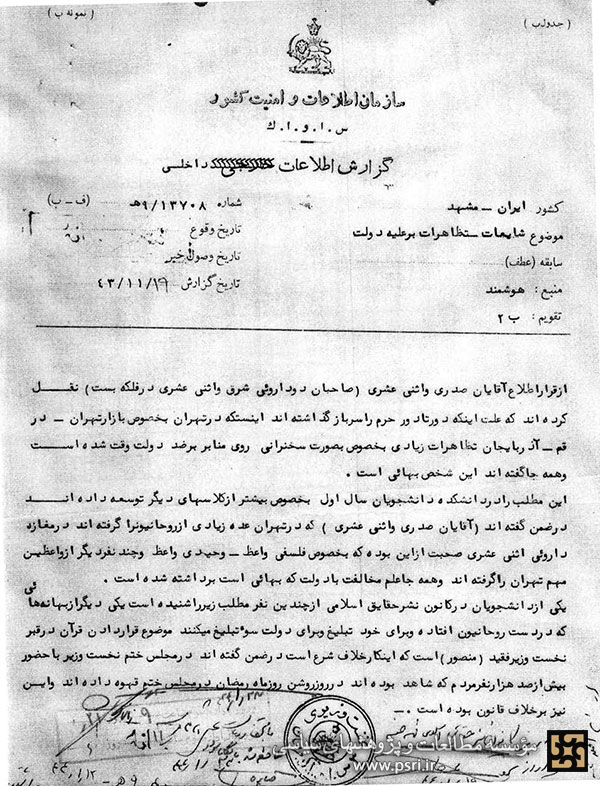 ( جدول ب )
( نمونه ب )
سازمان اطلاعات و امنیت کشور
س . ا . و . ا . ک
گزارش اطلاعات داخلی
کشور ایران ــ مشهد
شماره ۹/۱۳۷۰۸هـ (ف ــ ب)
موضوع شایعات ــ تظاهرات برعلیه دولت
تاریخ وقوع
سابقه (عطف)
تاریخ وصول خبر
منبع : هوشمند
تاریخ گزارش ۴۳/۱۱/۱۹
تقویم : ب ۲
ازقراراطلاع آقایان صدری واثنی عشری (صاحبان دوداروئی شرق واثنی عشری درفلکه بست) نقل
کرده اند که علت اینکه دورتادور حرم راسرباز گذاشته اند اینستکه درتهران بخصوص بازارتهران ــ در
قم ــ آذربایجان تظاهرات زیادی بخصوص بصورت سخنرانی روی منابر برضد دولت وقت شده است
وهمه جاگفته اند این شخص بهائی است .
این مطلب رادردانشکده دانشجویان سال اول بخصوص بیشتر ازکلاسهای دیگر توسعه داده اند
درضمن گفته اند (آقایان صدری واثنی عشری ) که درتهران عده زیادی ازروحانیونرا گرفته اند درمغازه
داروئی اثنی عشری صحبت ازاین بوده که بخصوص فلسفی واعظ ــ وحیدی واعظ وچند نفردیگر ازواعظین
مهم تهران راگرفته اند وهمه جاعلم مخالفت بادولت که بهائی است برداشته شده است .
یکی ازدانشجویان درکانون نشرحقایق اسلامی ازچندین نفر مطلب زیرراشنیده است یکی دیگرازبهانه‌هائی
که دردست روحانیون افتاده وبرای خود تبلیغ وبرای دولت سوءتبلیغ میکنند موضوع قراردادن قرآن درقبر
نخست وزیرفقید (منصور) است که اینکارخلاف شرع است درضمن گفته اند درمجلس ختم نخست وزیر باحضور
بیش ازصد هزارنفرمردم که شاهد بوده اند درروزروشن روزماه رمضان درمجلس ختم قهوه داده اند واین
نیز برخلاف قانون بوده است . ــ
مؤسسه مطالعات و پژوهشهای سیاسی
www.psri.ir